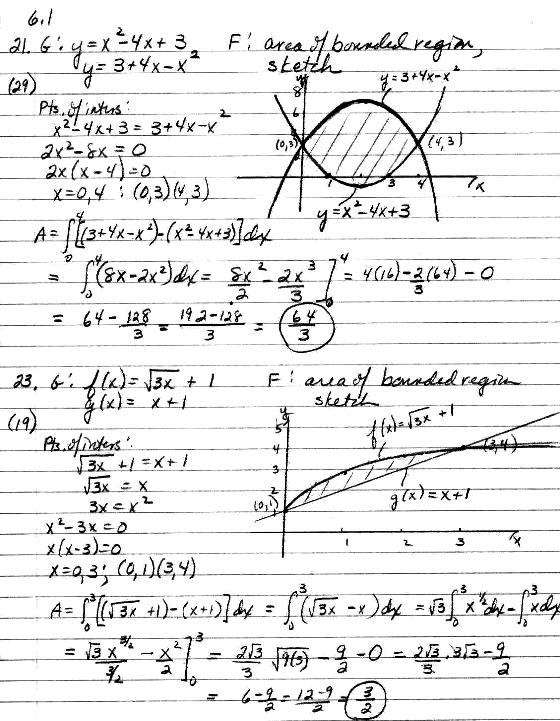 6.1
21. G: y = x² - 4x + 3 F: area of bounded region,
y = 3 + 4x - x² sketch
(29)
Pts. of inters:
x² - 4x + 3 = 3 + 4x - x²
2x² - 8x = 0
2x(x - 4) = 0
x = 0, 4 : (0,3)(4,3)
y
8
6
(0,3)
y = 3 + 4x - x²
(4,3)
1 3 4 x
y = x² - 4x + 3
A = ∫₀⁴ [(3 + 4x - x²) - (x² - 4x + 3)] dx
= ∫₀⁴ (8x - 2x²) dx = 8x²/2 - 2x³/3 ]₀⁴ = 4(16) - 2/3 (64) - 0
= 64 - 128/3 = 192 - 128/3 = 64/3
23. G: f(x) = √3x + 1 F: area of bounded region
g(x) = x + 1 sketch
(19)
Pts. of inters:
√3x + 1 = x + 1
√3x = x
3x = x²
x² - 3x = 0
x(x - 3) = 0
x = 0, 3 ; (0,1)(3,4)
y
5
4
3
2
(0,1)
f(x) = √3x + 1
(3,4)
g(x) = x + 1
1 2 3 x
A = ∫₀³ [(√3x + 1) - (x + 1)] dx = ∫₀³ (√3x - x) dx = √3 ∫₀³ x^½ dx - ∫₀³ x dx
= √3 x^3/2 / 3/2 - x²/2 ]₀³ = 2√3/3 √9(3) - 9/2 - 0 = 2√3/3 · 3√3 - 9/2
= 6 - 9/2 = 12 - 9/2 = 3/2